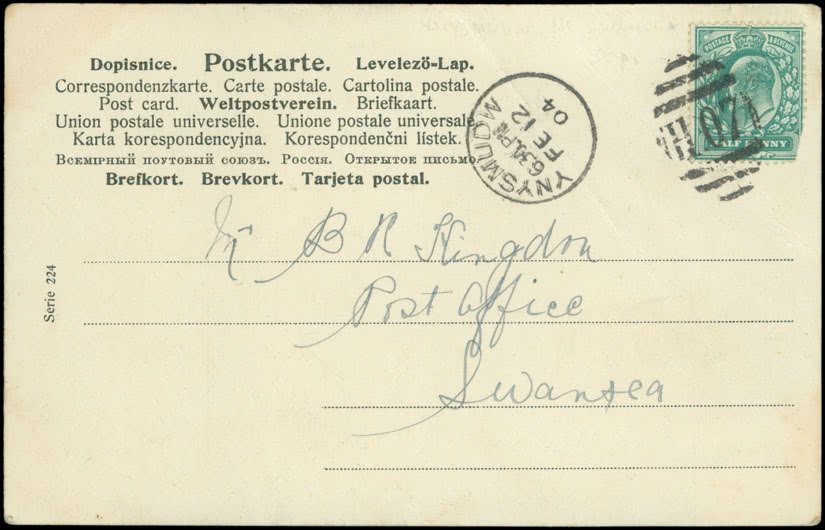 Dopisnice. Postkarte. Levelezö-Lap.
Correspondenzkarte. Carte postale. Cartolina postale.
Post card. Weltpostverein. Briefkaart.
Union postale universelle. Unione postale universale
Karta korespondencyjna. Korespondenčni lístek.
Всемірный почтовый союзъ. Россія. Открытое письмо.
Brefkort. Brevkort. Tarjeta postal.
YNYSMUDW
6 30 PM
FE 12
04
POSTAGE REVENUE
H07
HALF PENNY
Serie 224
Mr B R Kingdon
Post Office
Swansea